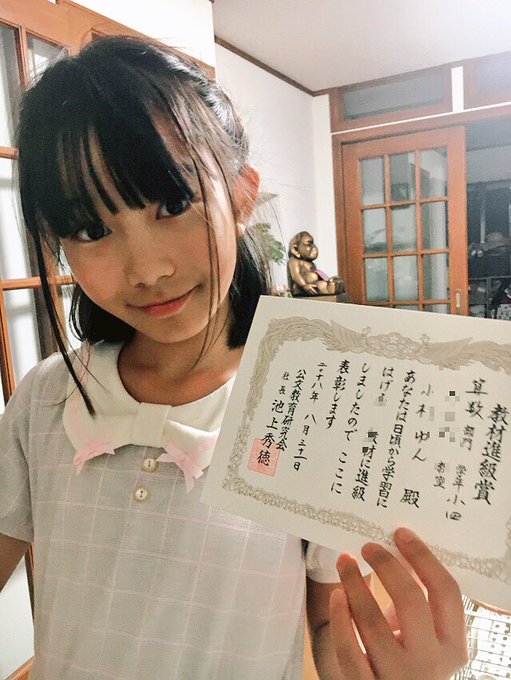 教材進級賞
算数部門 学年 小四
教室
小木 ゆん 殿
あなたは日頃から学習に
はげ 教材に進級
しましたので ここに
表彰します
二〇一八年 八月三十一日
公文教育研究会
社長 池上秀徳